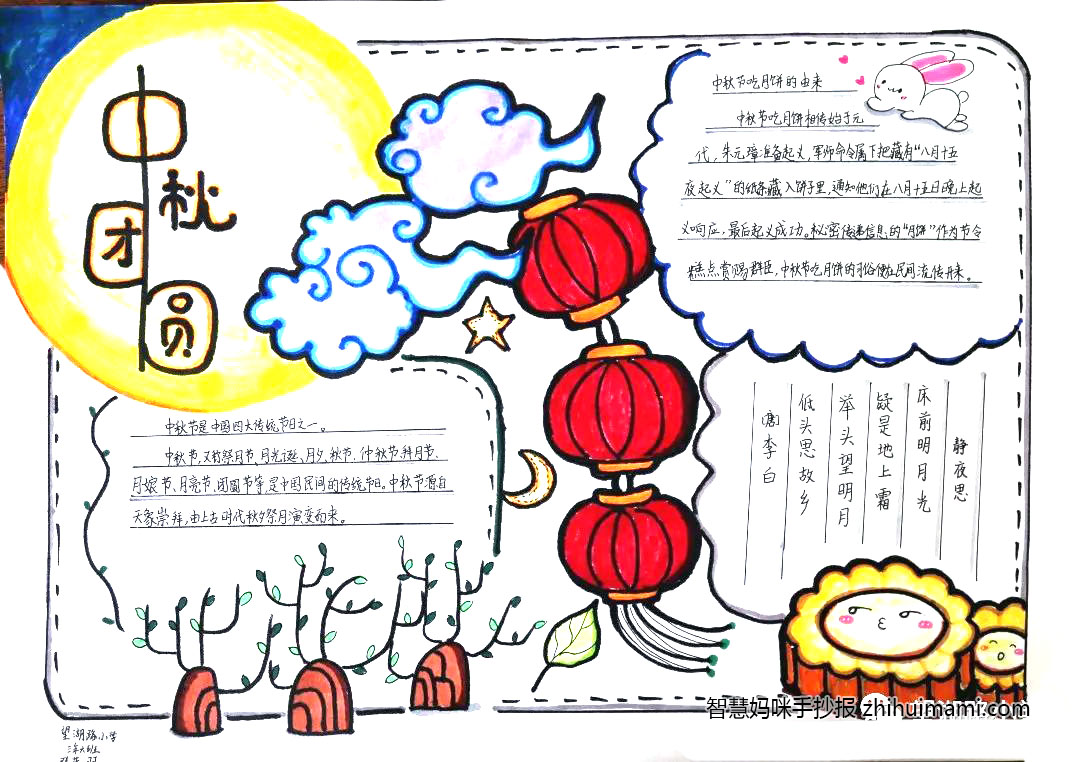 中秋
团圆
中秋节吃月饼的由来
中秋节吃月饼相传始于元
代，朱元璋准备起义，军师命令属下把藏有“八月十五
夜起义”的纸条藏入饼子里，通知他们在八月十五日晚上起
义响应，最后起义成功。秘密传递信息的“月饼”作为节令
糕点赏赐群臣，中秋节吃月饼的习俗便在民间流传开来。
中秋节是中国四大传统节日之一。
中秋节，又称祭月节、月光诞、月夕、秋节、仲秋节、拜月节、
月娘节、月亮节、团圆节等，是中国民间的传统节日。中秋节源自
天象崇拜，由上古时代秋夕祭月演变而来。
静夜思
床前明月光
疑是地上霜
举头望明月
低头思故乡
李白
望湖路小学
智慧妈咪手抄报(zhihuimami.com